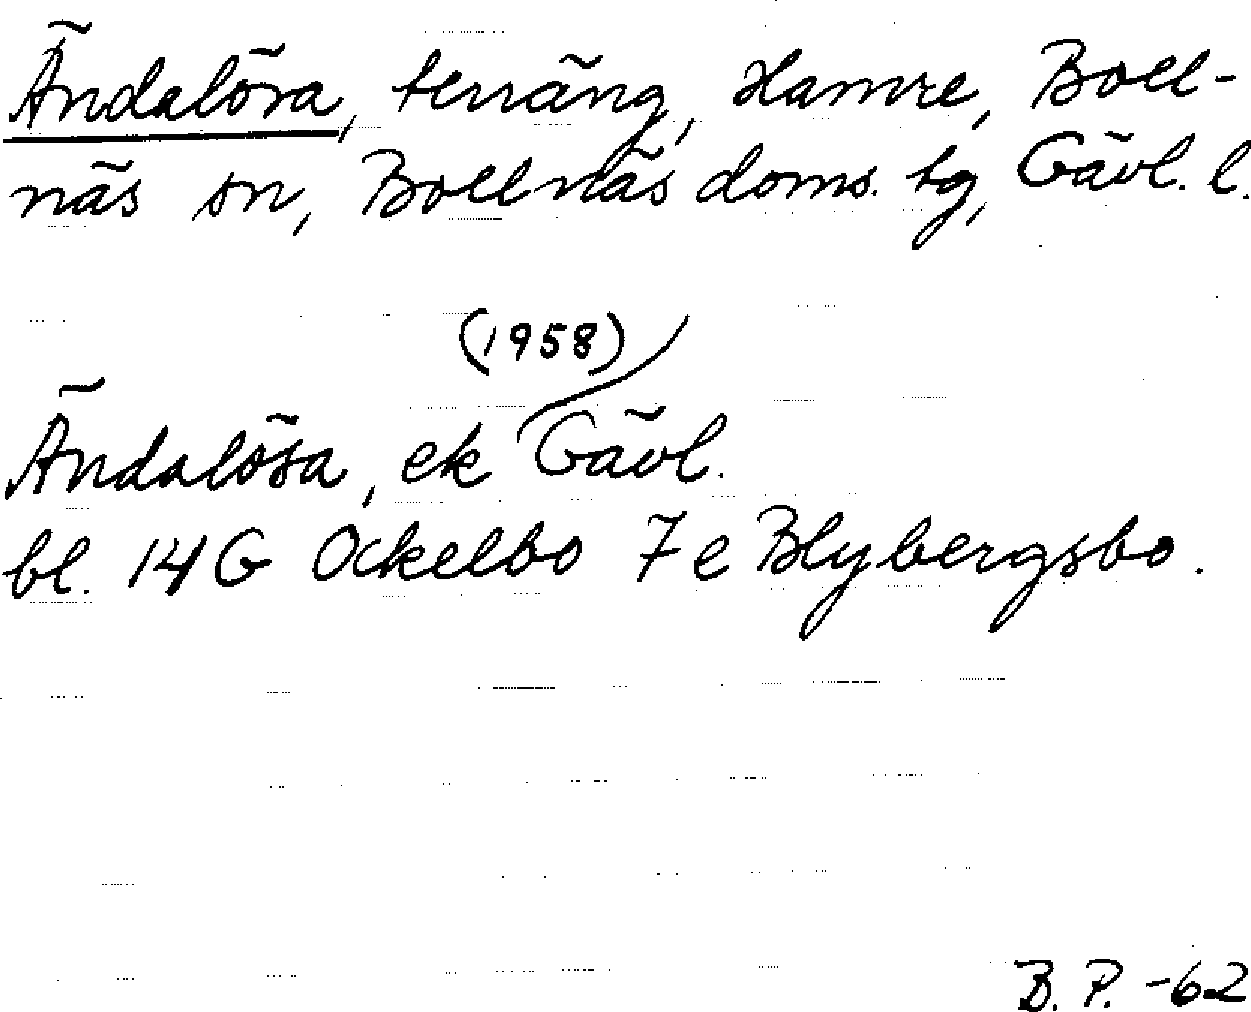 Ändalösa, terräng, Hamre, Boll-
näs sn, Bollnäs doms. tg, Gävl. l.
(1958)
Ändalösa, ek Gävl.
bl. 14G Ockelbo 7e Blybergsbo.
B. P. -62